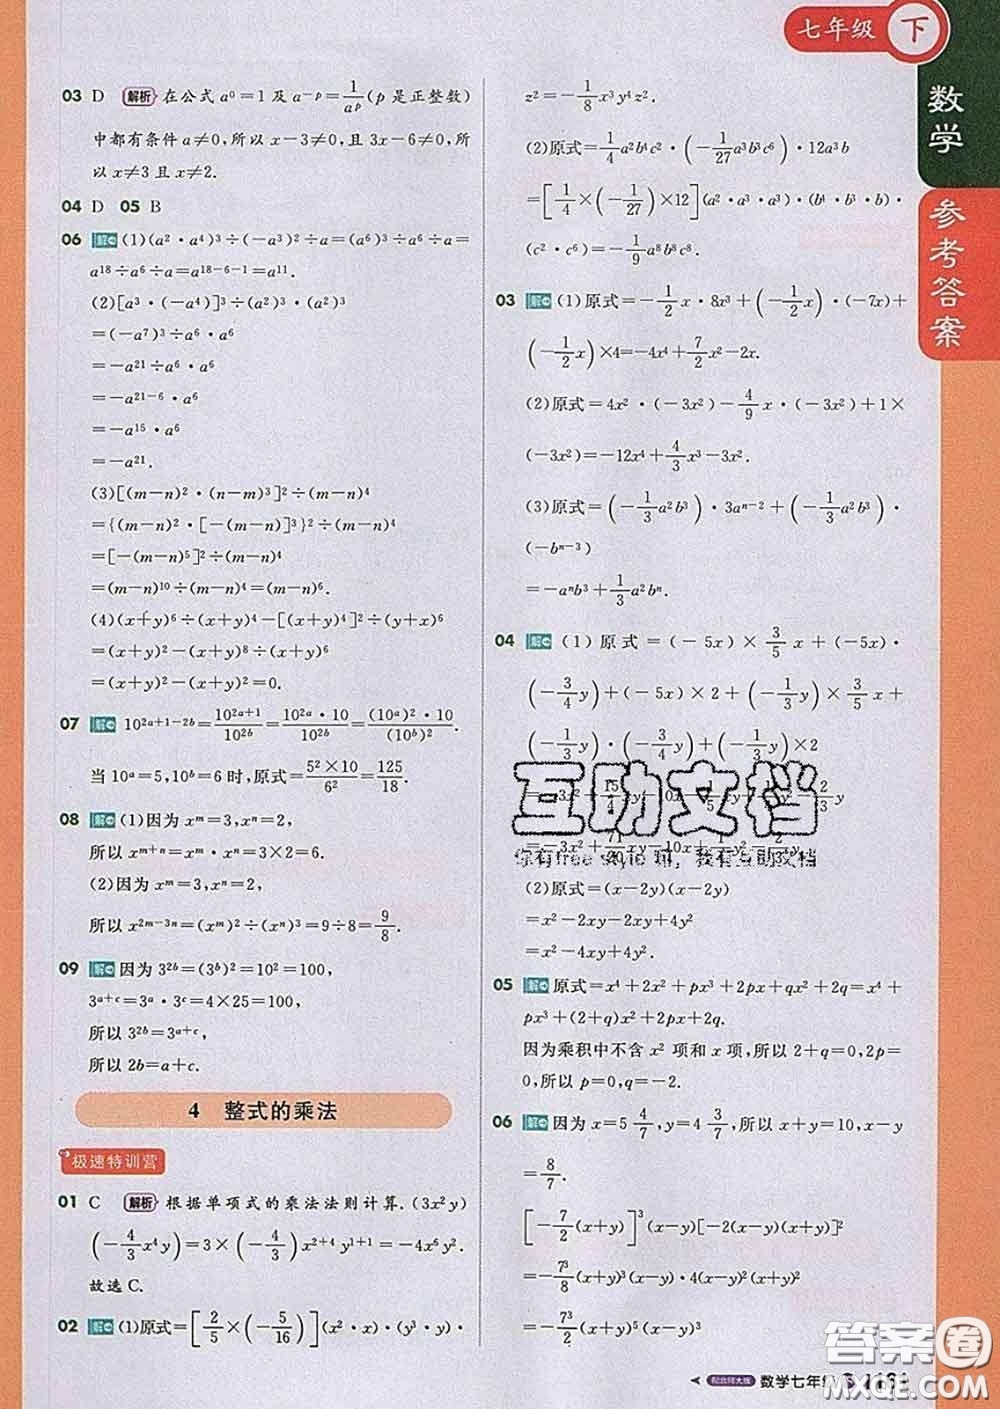 七年级 下
数学
参考答案
03 D 解析 在公式 a⁰=1 及 a⁻ᵖ=1/aᵖ(p 是正整数)
中都有条件 a≠0,所以 x-3≠0,且 3x-6≠0,所
以 x≠3 且 x≠2.
04 D 05 B
06 解 (1)(a²·a⁴)³÷(-a³)²÷a=(a⁶)³÷a⁶÷a=
a¹⁸÷a⁶÷a=a¹⁸⁻⁶⁻¹=a¹¹.
(2)[a³·(-a)⁴]³÷(a²)³·(a²)³
=(-a⁷)³÷a⁶·a⁶
=-a²¹÷a⁶·a⁶
=-a²¹⁻⁶·a⁶
=-a¹⁵·a⁶
=-a²¹.
(3)[(m-n)²·(n-m)³]²÷(m-n)⁴
={(m-n)²·[-(m-n)]³}²÷(m-n)⁴
=[-(m-n)⁵]²÷(m-n)⁴
=(m-n)¹⁰÷(m-n)⁴=(m-n)⁶.
(4)(x+y)⁶÷(x+y)⁴-[(x+y)⁴]²÷(y+x)⁶
=(x+y)²-(x+y)⁸÷(x+y)⁶
=(x+y)²-(x+y)²=0.
07 解 10²ᵃ⁺¹⁻²ᵇ=10²ᵃ⁺¹/10²ᵇ=10²ᵃ·10/10²ᵇ=(10ᵃ)²·10/(10ᵇ)².
当 10ᵃ=5,10ᵇ=6 时,原式=5²×10/6²=125/18.
08 解 (1)因为 xᵐ=3,xⁿ=2,
所以 xᵐ⁺ⁿ=xᵐ·xⁿ=3×2=6.
(2)因为 xᵐ=3,xⁿ=2,
所以 x²ᵐ⁻³ⁿ=(xᵐ)²÷(xⁿ)³=9÷8=9/8.
09 解 因为 3²ᵇ=(3ᵇ)²=10²=100,
3ᵃ⁺ᶜ=3ᵃ·3ᶜ=4×25=100,
所以 3²ᵇ=3ᵃ⁺ᶜ,
所以 2b=a+c.
4 整式的乘法
极速特训营
01 C 解析 根据单项式的乘法法则计算.(3x²y)
(-4/3x⁴y)=3×(-4/3)x²⁺⁴y¹⁺¹=-4x⁶y².
故选 C.
02 解 (1)原式=[2/5×(-5/16)](x²·x)·(y³·y)·
z²=-1/8x³y⁴z².
(2)原式=1/4a²b⁴c²·(-1/27a³b³c⁶)·12a³b
=[1/4×(-1/27)×12](a²·a³·a³)·(b⁴·b³·b)
(c²·c⁶)=-1/9a⁸b⁸c⁸.
03 解 (1)原式=-1/2x·8x³+(-1/2x)·(-7x)+
(-1/2x)×4=-4x⁴+7/2x²-2x.
(2)原式=4x²·(-3x²)-4/9x·(-3x²)+1×
(-3x²)=-12x⁴+4/3x³-3x².
(3)原式=(-1/3a²b³)·3aⁿ⁻²+(-1/3a²b³)·
(-bⁿ⁻³)
=-aⁿb³+1/3a²bⁿ.
04 解 (1)原式=(-5x)×3/5x+(-5x)·
(-3/4y)+(-5x)×2+(-1/3y)×3/5x+
(-1/3y)·(-3/4y)+(-1/3y)×2
互助文档
(2)原式=(x-2y)(x-2y)
=x²-2xy-2xy+4y²
=x²-4xy+4y².
05 解 原式=x⁴+2x²+px³+2px+qx²+2q=x⁴+
px³+(2+q)x²+2px+2q.
因为乘积中不含 x² 项和 x 项,所以 2+q=0,2p=
0,所以 p=0,q=-2.
06 解 因为 x=5 4/7,y=4 3/7,所以 x+y=10,x-y
=8/7.
[-7/2(x+y)]³(x-y)[-2(x-y)(x+y)]²
=-7³/8(x+y)³(x-y)·4(x-y)²(x+y)²
=-7³/2(x+y)⁵(x-y)³
配北师大版 数学七年级
答案圈